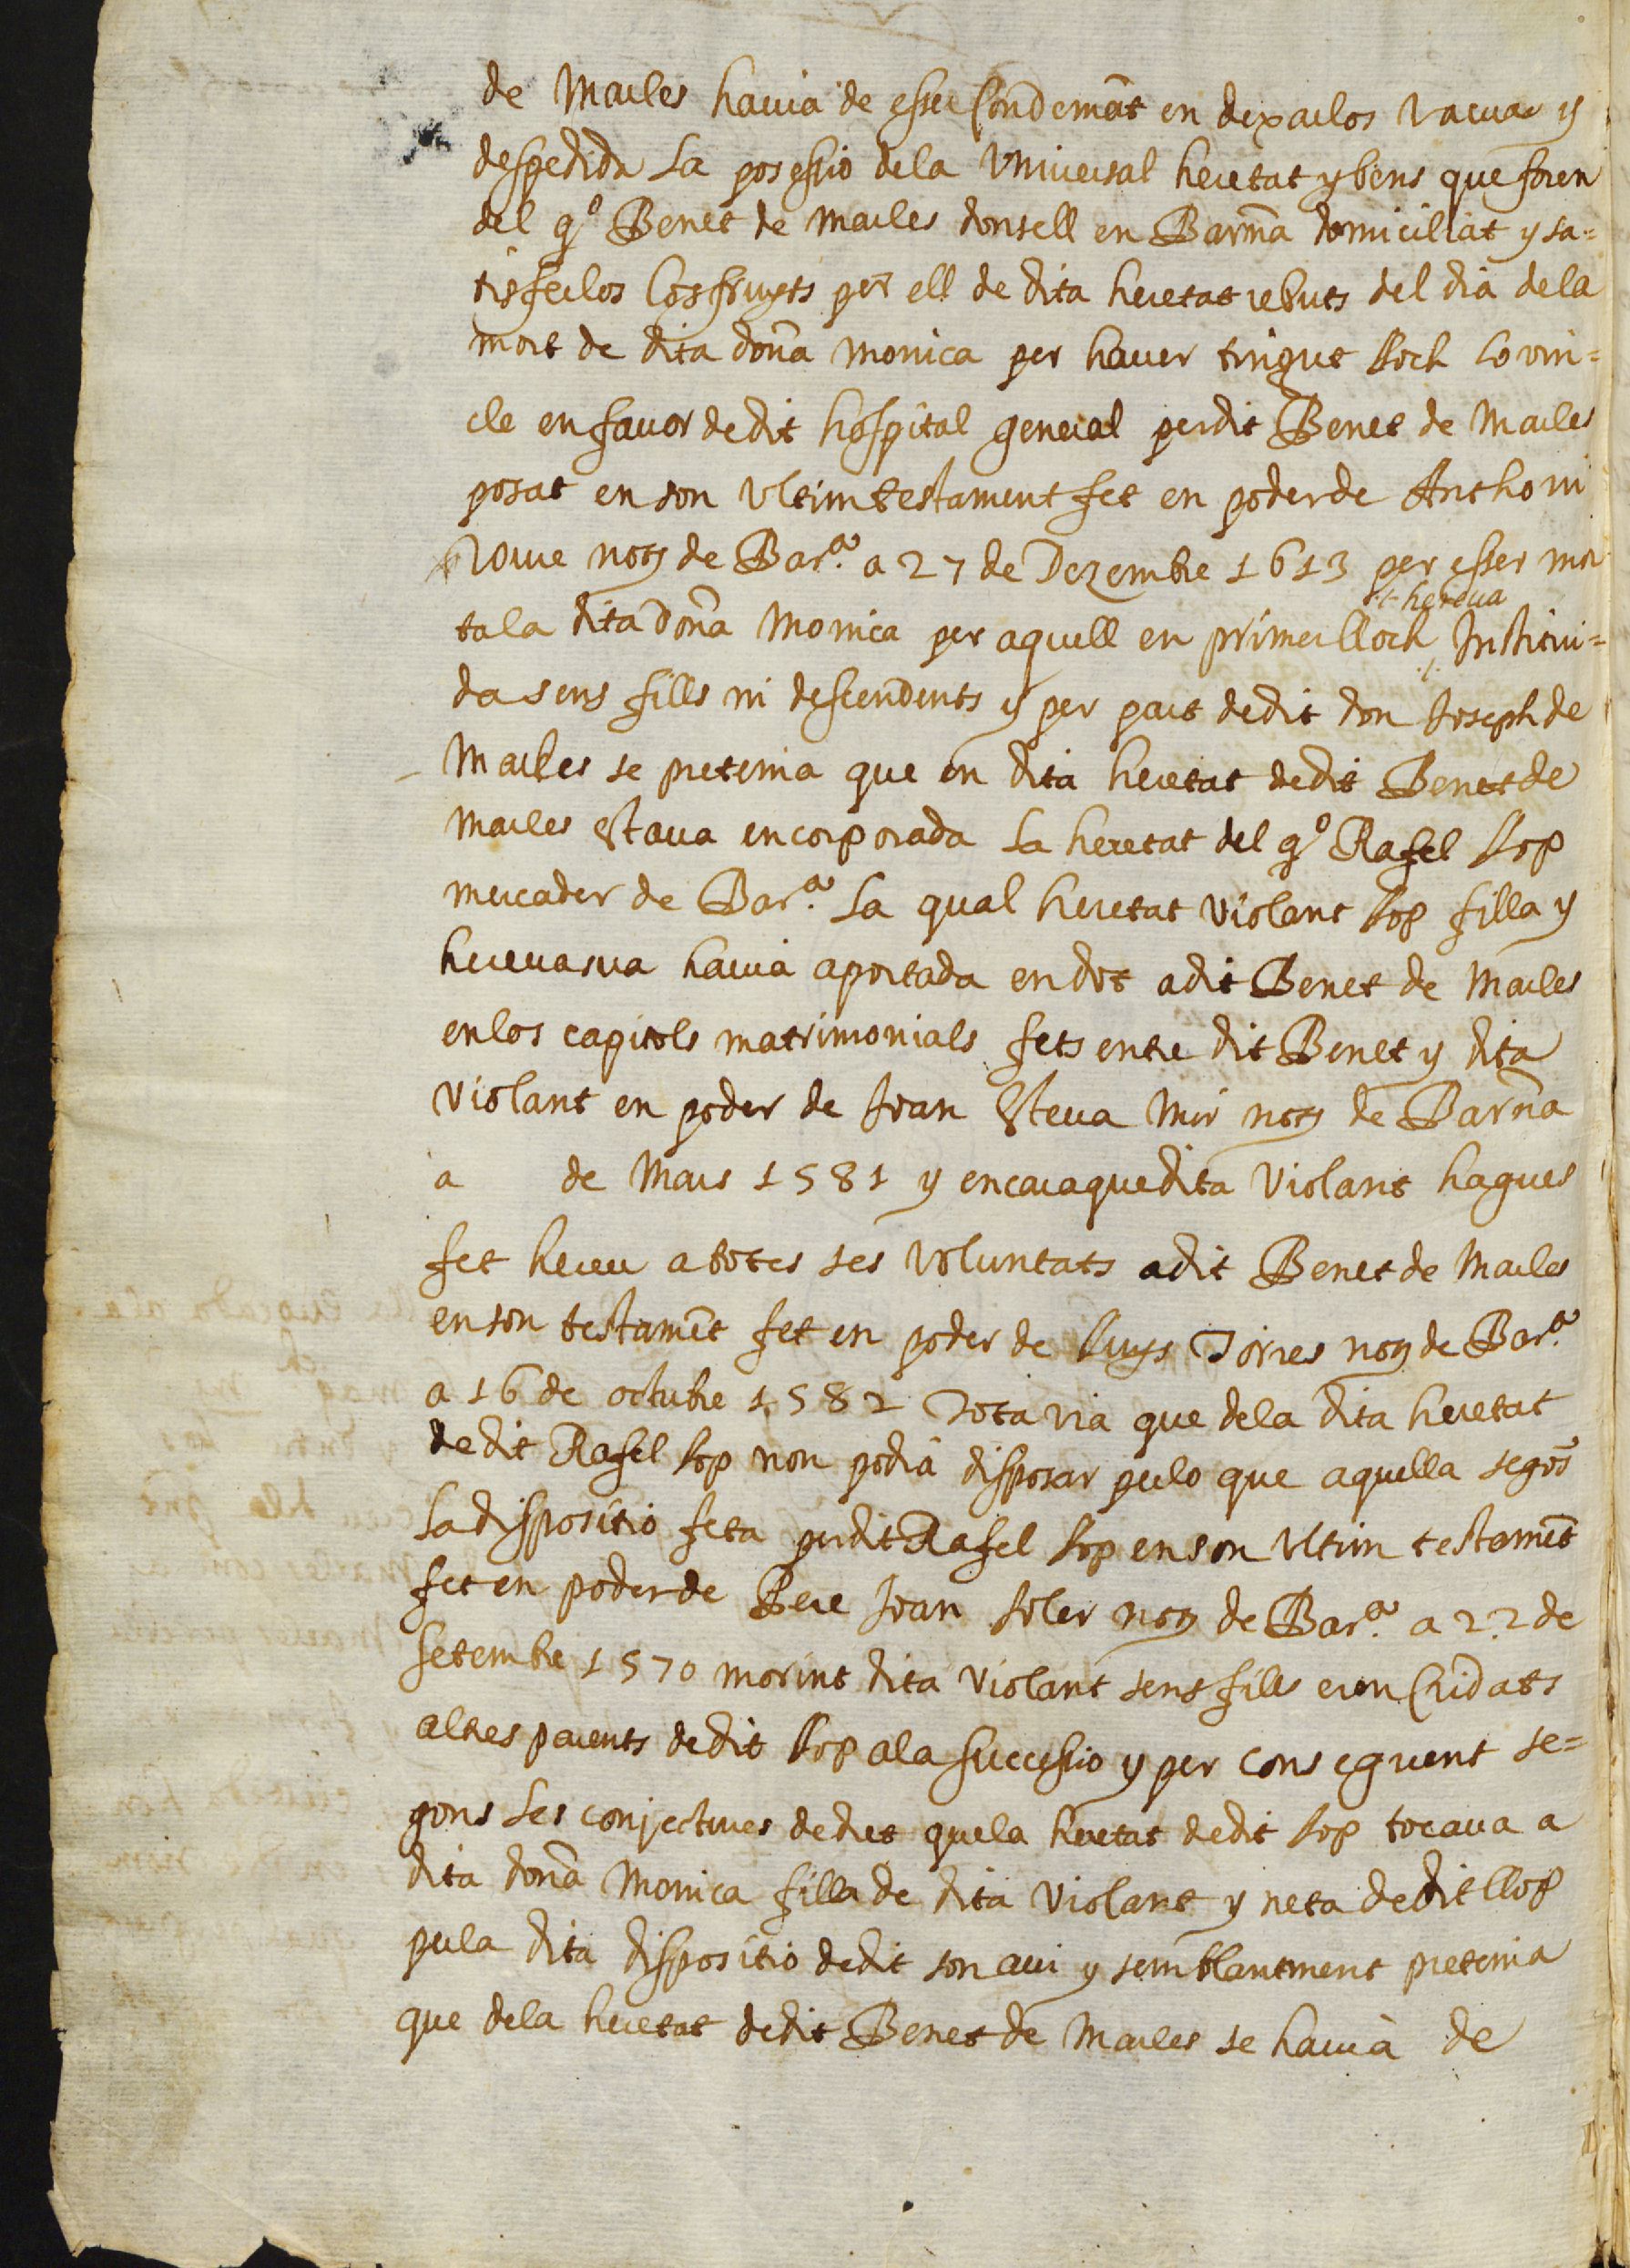 de Marles hauia de esser Condemnāt en dexarlos vacua y
despedida la possessio dela Vniuersal heretat y bens que foren
del qº Benet de Marles donsell en Barnā domiciliat y sa=
tisferlos los fruyts per ell de dita heretat rebuts del dia dela
mort de dita donā Monica per hauer tingut lloch lo vin=
cle en fauor de dit hospital general per dit Benet de Marles
posat en son vltim testament fet en poder de Anthoni
Roure noty de Bar.ª a 27 de Dezembre 1613 per esser mor
ta la dita donā Monica per aquell en primer lloch hereua Institui=
da sens fills ni descendents y per part de dit don Joseph de
Marles se pretenia que en dita heretat de dit Benet de
Marles estaua encorporada la heretat del qº Rafel llop
mercader de Bar.ª la qual heretat Violant llop filla y
hereua sua hauia aportada en dot a dit Benet de Marles
en los capitols matrimonials fets entre dit Benet y dita
Violant en poder de Joan Esteua Mir noty de Barnā
a de Mars 1581 y encara que dita Violant hagues
fet hereu a totes ses voluntats a dit Benet de Marles
en son testamēt fet en poder de lluys Torres noty de Bar.ª
a 16 de octubre 1582 Tota via que dela dita heretat
de dit Rafel llop non podia disposar perlo que aquella segōs
la dispositio feta per dit Rafel llop en son vltim testamēt
fet en poder de Pere Joan soler noty de Bar.ª a 22 de
setembre 1570 morint dita Violant sens fills eren Cridats
altres parents de dit llop ala successio y per consequent se=
gons les conjectures de dret que la heretat de dit llop tocaua a
dita donā Monica filla de dita Violant y neta de dit llop
per la dita dispositio de dit son aui y semblantment pretenia
que dela heretat de dit Benet de Marles se hauia de